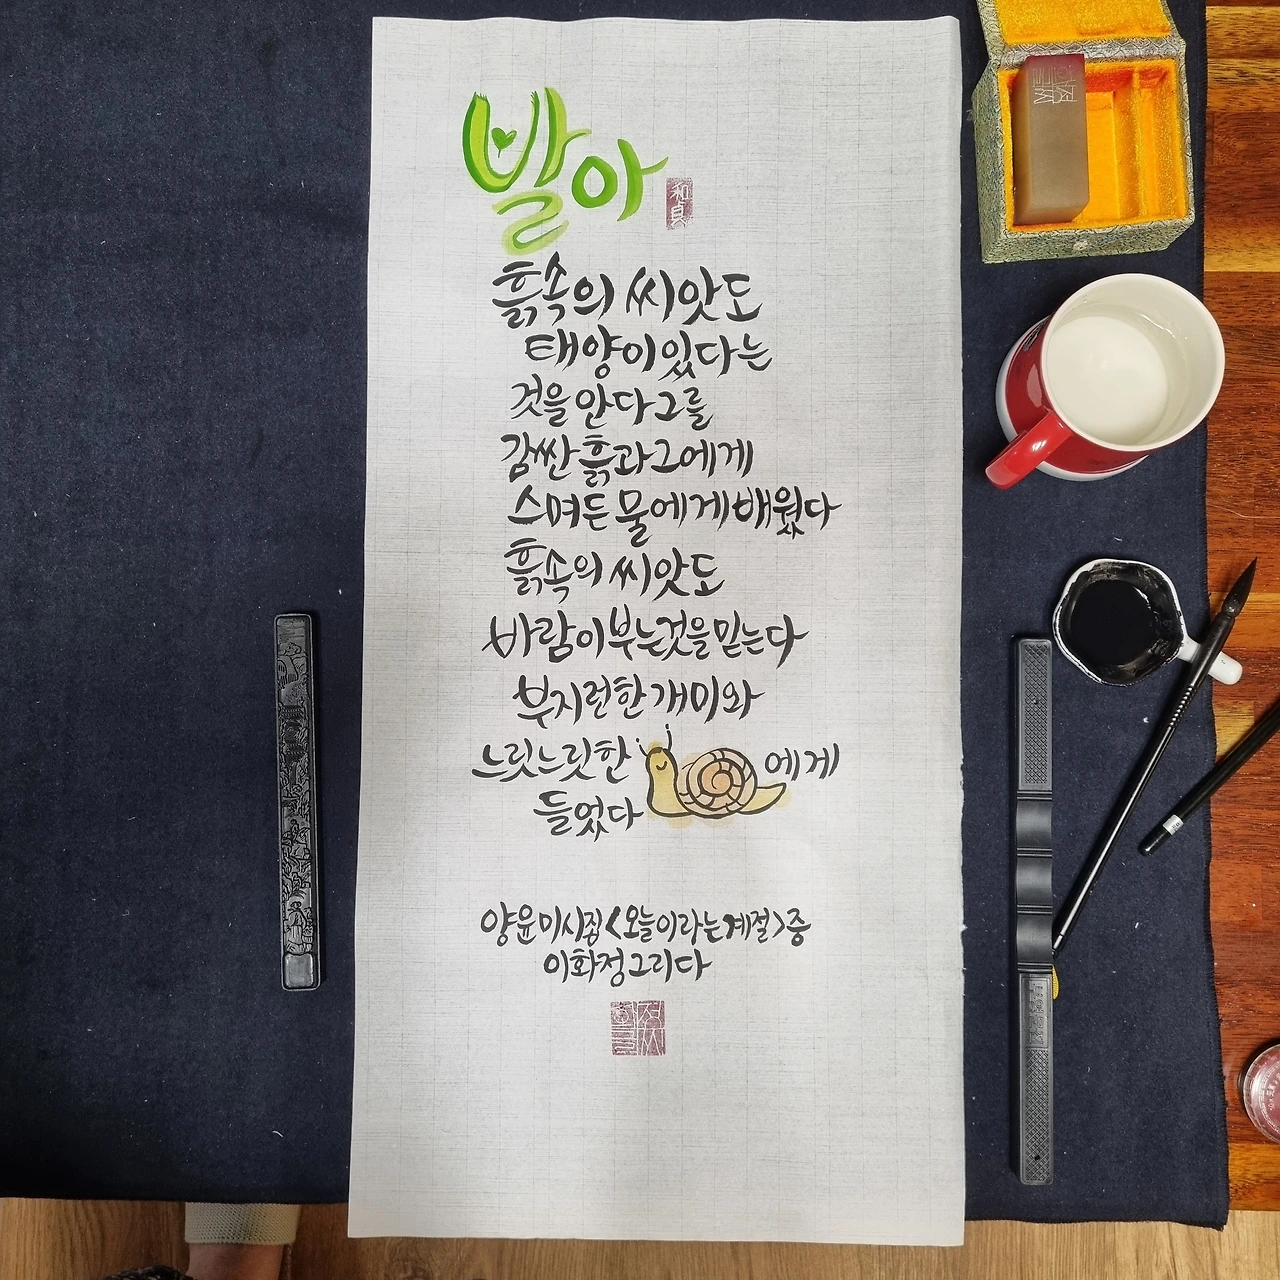 발아
和貞
흙속의 씨앗도
태양이있다는
것을 안다 그를
감싼 흙과 그에게
스며든 물에게 배웠다
흙속의 씨앗도
바람이 부는것을 믿는다
부지런한 개미와
느릿느릿한 에게
들었다
양윤미시집<오늘이라는 계절>중
이화정그리다